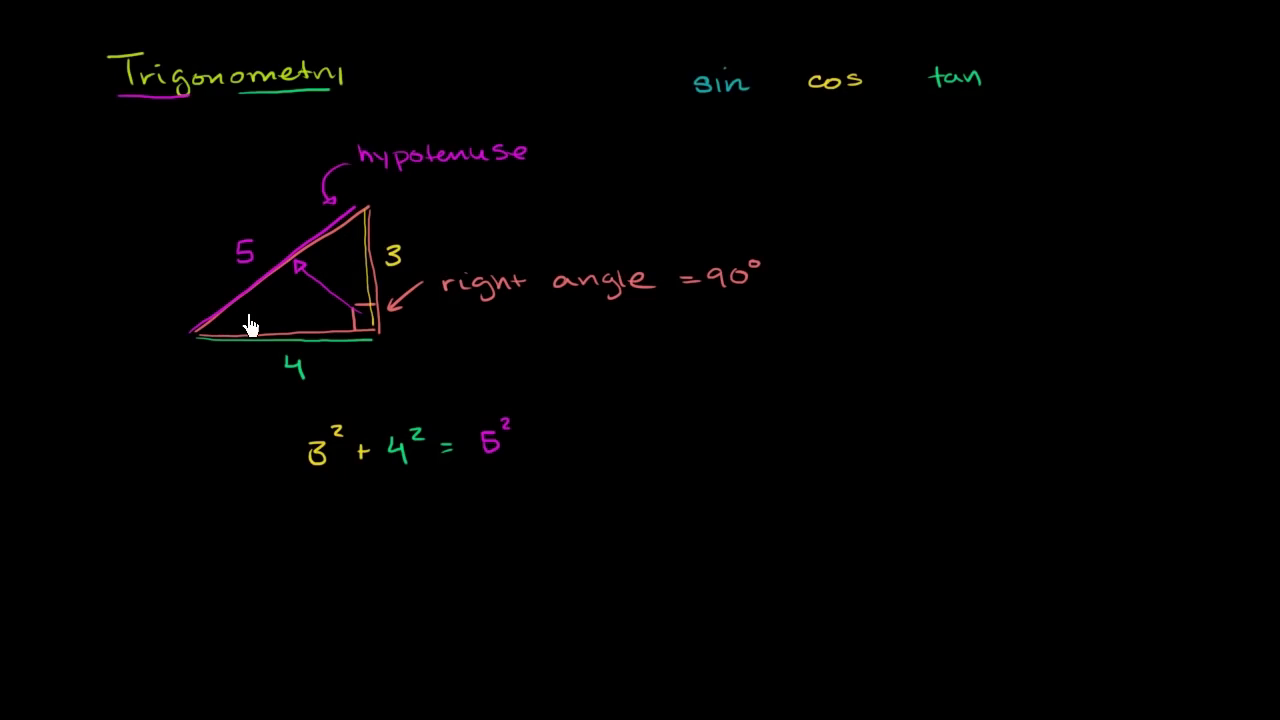 Trigonometry
sin cos tan
hypotenuse
5
3
right angle = 90°
4
3² + 4² = 5²